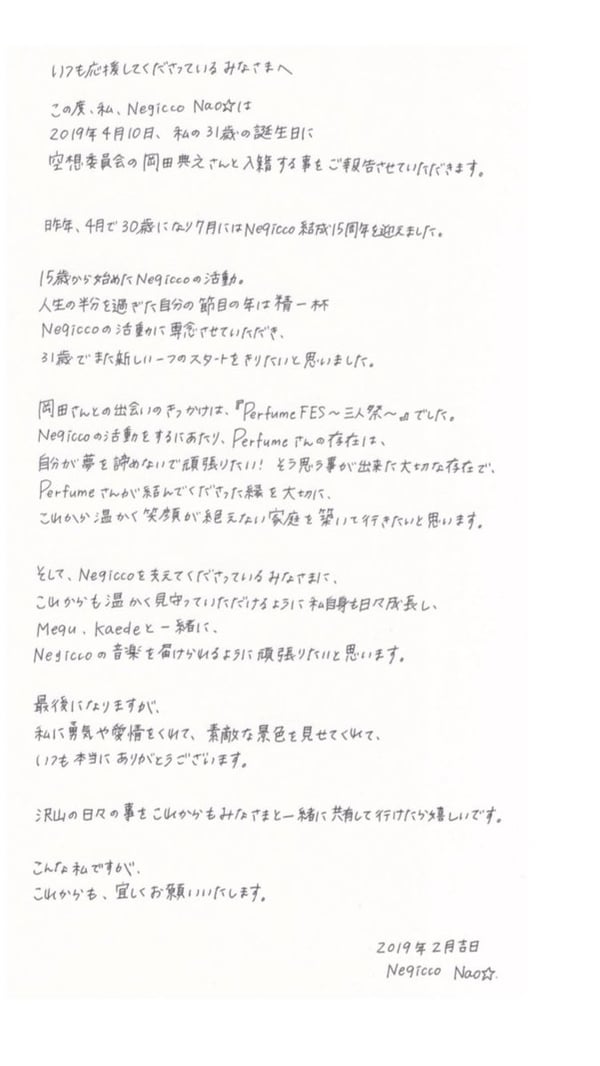 いつも応援してくださっているみなさまへ
この度、私、Negicco Nao☆は
2019年4月10日、私の31歳の誕生日に
空想委員会の岡田典之さんと入籍する事をご報告させていただきます。
昨年、4月で30歳になり7月にはNegicco結成15周年を迎えました。
15歳から始めたNegiccoの活動。
人生の半分を過ぎた自分の節目の年は精一杯
Negiccoの活動に専念させていただき、
31歳でまた新しい一つのスタートをきりたいと思いました。
岡田さんとの出会いのきっかけは、『Perfume FES〜三人祭〜』でした。
Negiccoの活動をするにあたり、Perfumeさんの存在は、
自分が夢を諦めないで頑張りたい！そう思う事が出来た大切な存在で、
Perfumeさんが結んでくださった縁を大切に、
これから温かく笑顔が絶えない家庭を築いて行きたいと思います。
そして、Negiccoを支えてくださっているみなさまに、
これからも温かく見守っていただけるように私自身も日々成長し、
Megu、Kaedeと一緒に、
Negiccoの音楽を届けられるように頑張りたいと思います。
最後になりますが、
私に勇気や愛情をくれて、素敵な景色を見せてくれて、
いつも本当にありがとうございます。
沢山の日々の事をこれからもみなさまと一緒に共有して行けたら嬉しいです。
こんな私ですが、
これからも、宜しくお願いいたします。
2019年2月吉日
Negicco Nao☆.